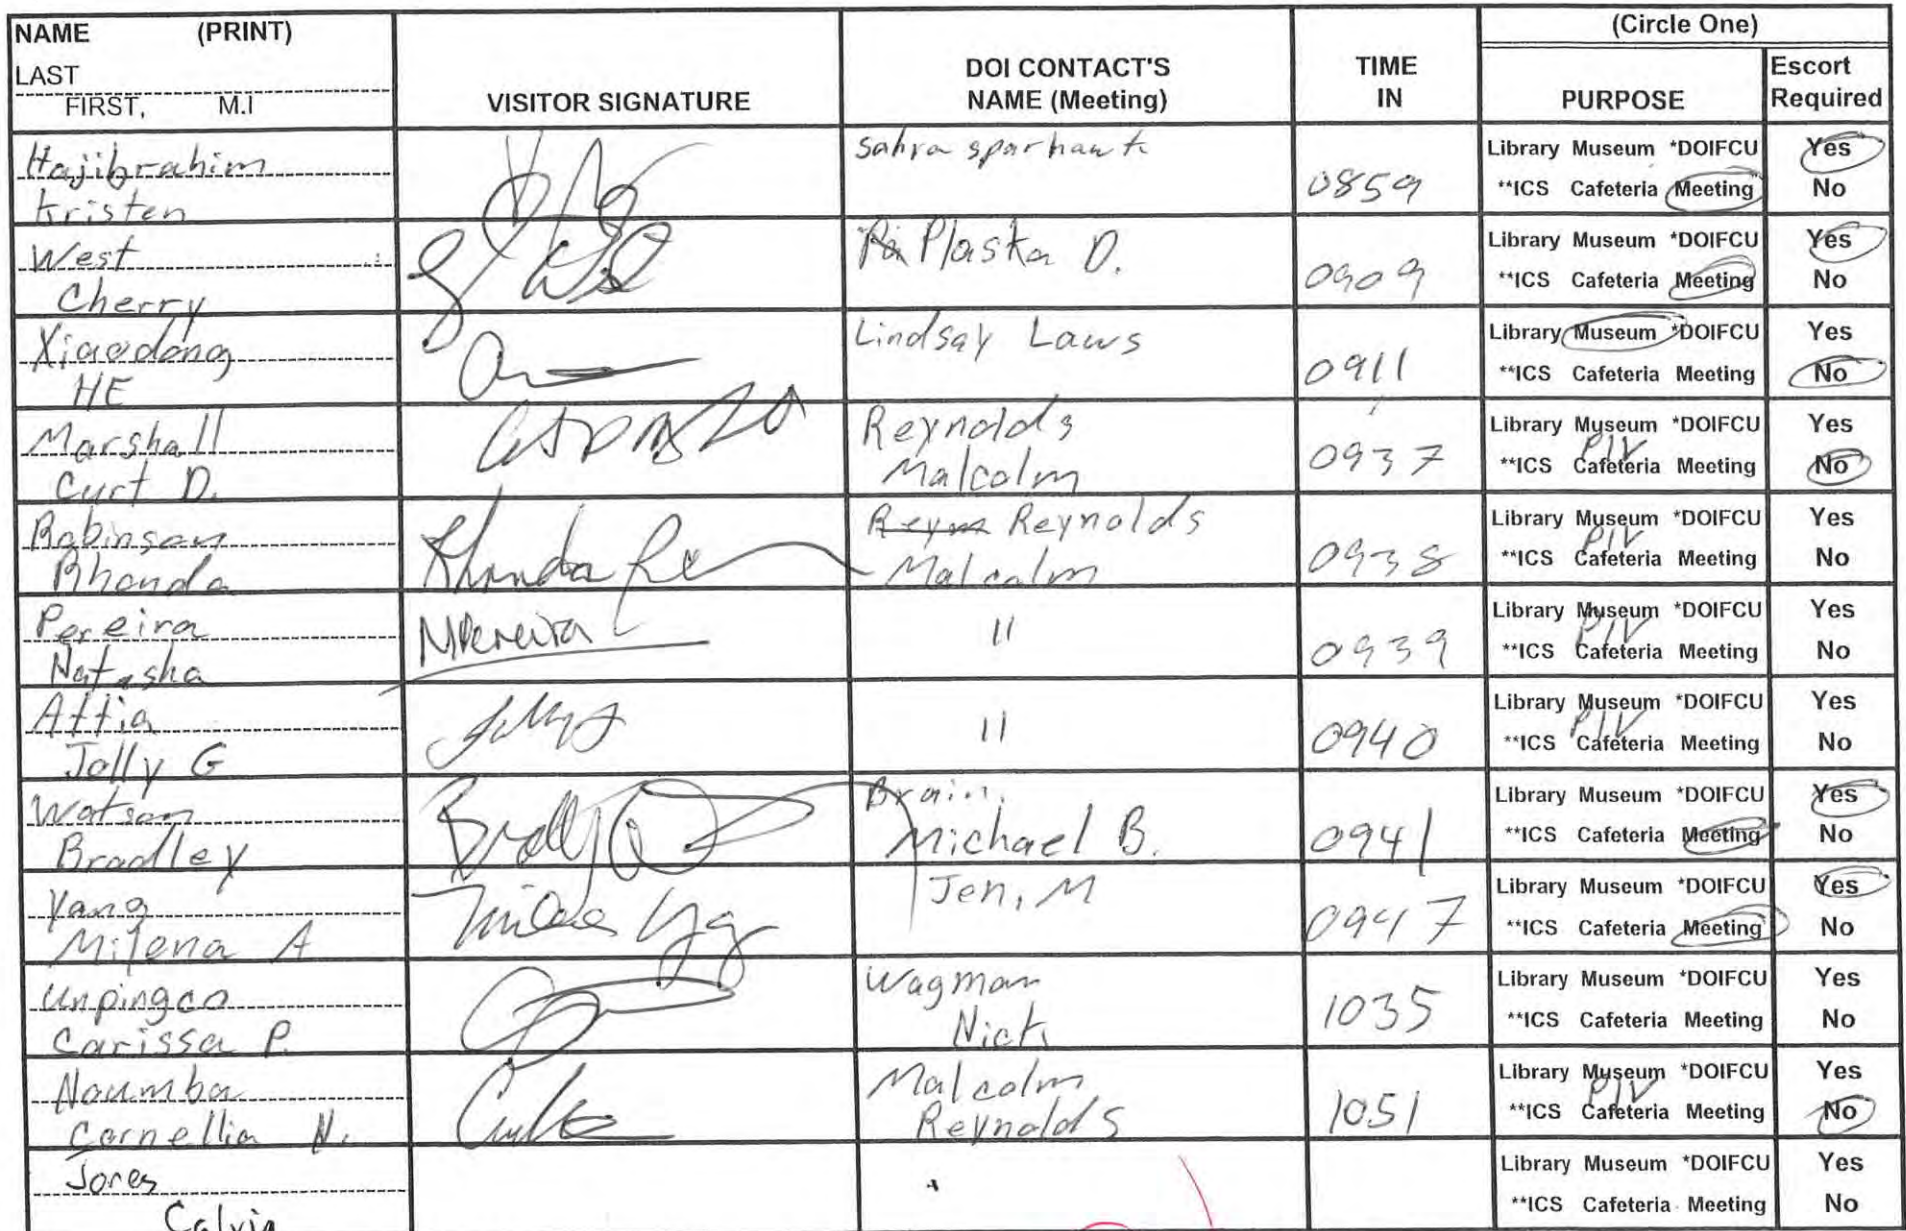 NAME (PRINT)
LAST
FIRST, M.I
VISITOR SIGNATURE
DOI CONTACT'S
NAME (Meeting)
TIME
IN
(Circle One)
PURPOSE
Escort
Required
Hajibrahim
Kristen
Sahra sparhawk
0859
Library Museum *DOIFCU Yes
**ICS Cafeteria Meeting No
West
Cherry
Plaska D.
0909
Library Museum *DOIFCU Yes
**ICS Cafeteria Meeting No
Xiaodong
HE
Lindsay Laws
0911
Library Museum *DOIFCU Yes
**ICS Cafeteria Meeting No
Marshall
Curt D.
Reynolds
Malcolm
0937
Library Museum *DOIFCU Yes
PIV
**ICS Cafeteria Meeting No
Robinson
Rhonda
Rhonda
Reynolds
Malcolm
0938
Library Museum *DOIFCU Yes
PIV
**ICS Cafeteria Meeting No
Pereira
Natasha
NPereira
11
0939
Library Museum *DOIFCU Yes
PIV
**ICS Cafeteria Meeting No
Attia
Jolly G
11
0940
Library Museum *DOIFCU Yes
PIV
**ICS Cafeteria Meeting No
Watson
Bradley
Brain,
Michael B.
0941
Library Museum *DOIFCU Yes
**ICS Cafeteria Meeting No
Yang
Milena A
Jen, M
0947
Library Museum *DOIFCU Yes
**ICS Cafeteria Meeting No
Unpingco
Carissa P.
Wagman
Nick
1035
Library Museum *DOIFCU Yes
**ICS Cafeteria Meeting No
Noumba
Cornellia N.
Malcolm
Reynolds
1051
Library Museum *DOIFCU Yes
PIV
**ICS Cafeteria Meeting No
Jores
Calvin
Library Museum *DOIFCU Yes
**ICS Cafeteria Meeting No